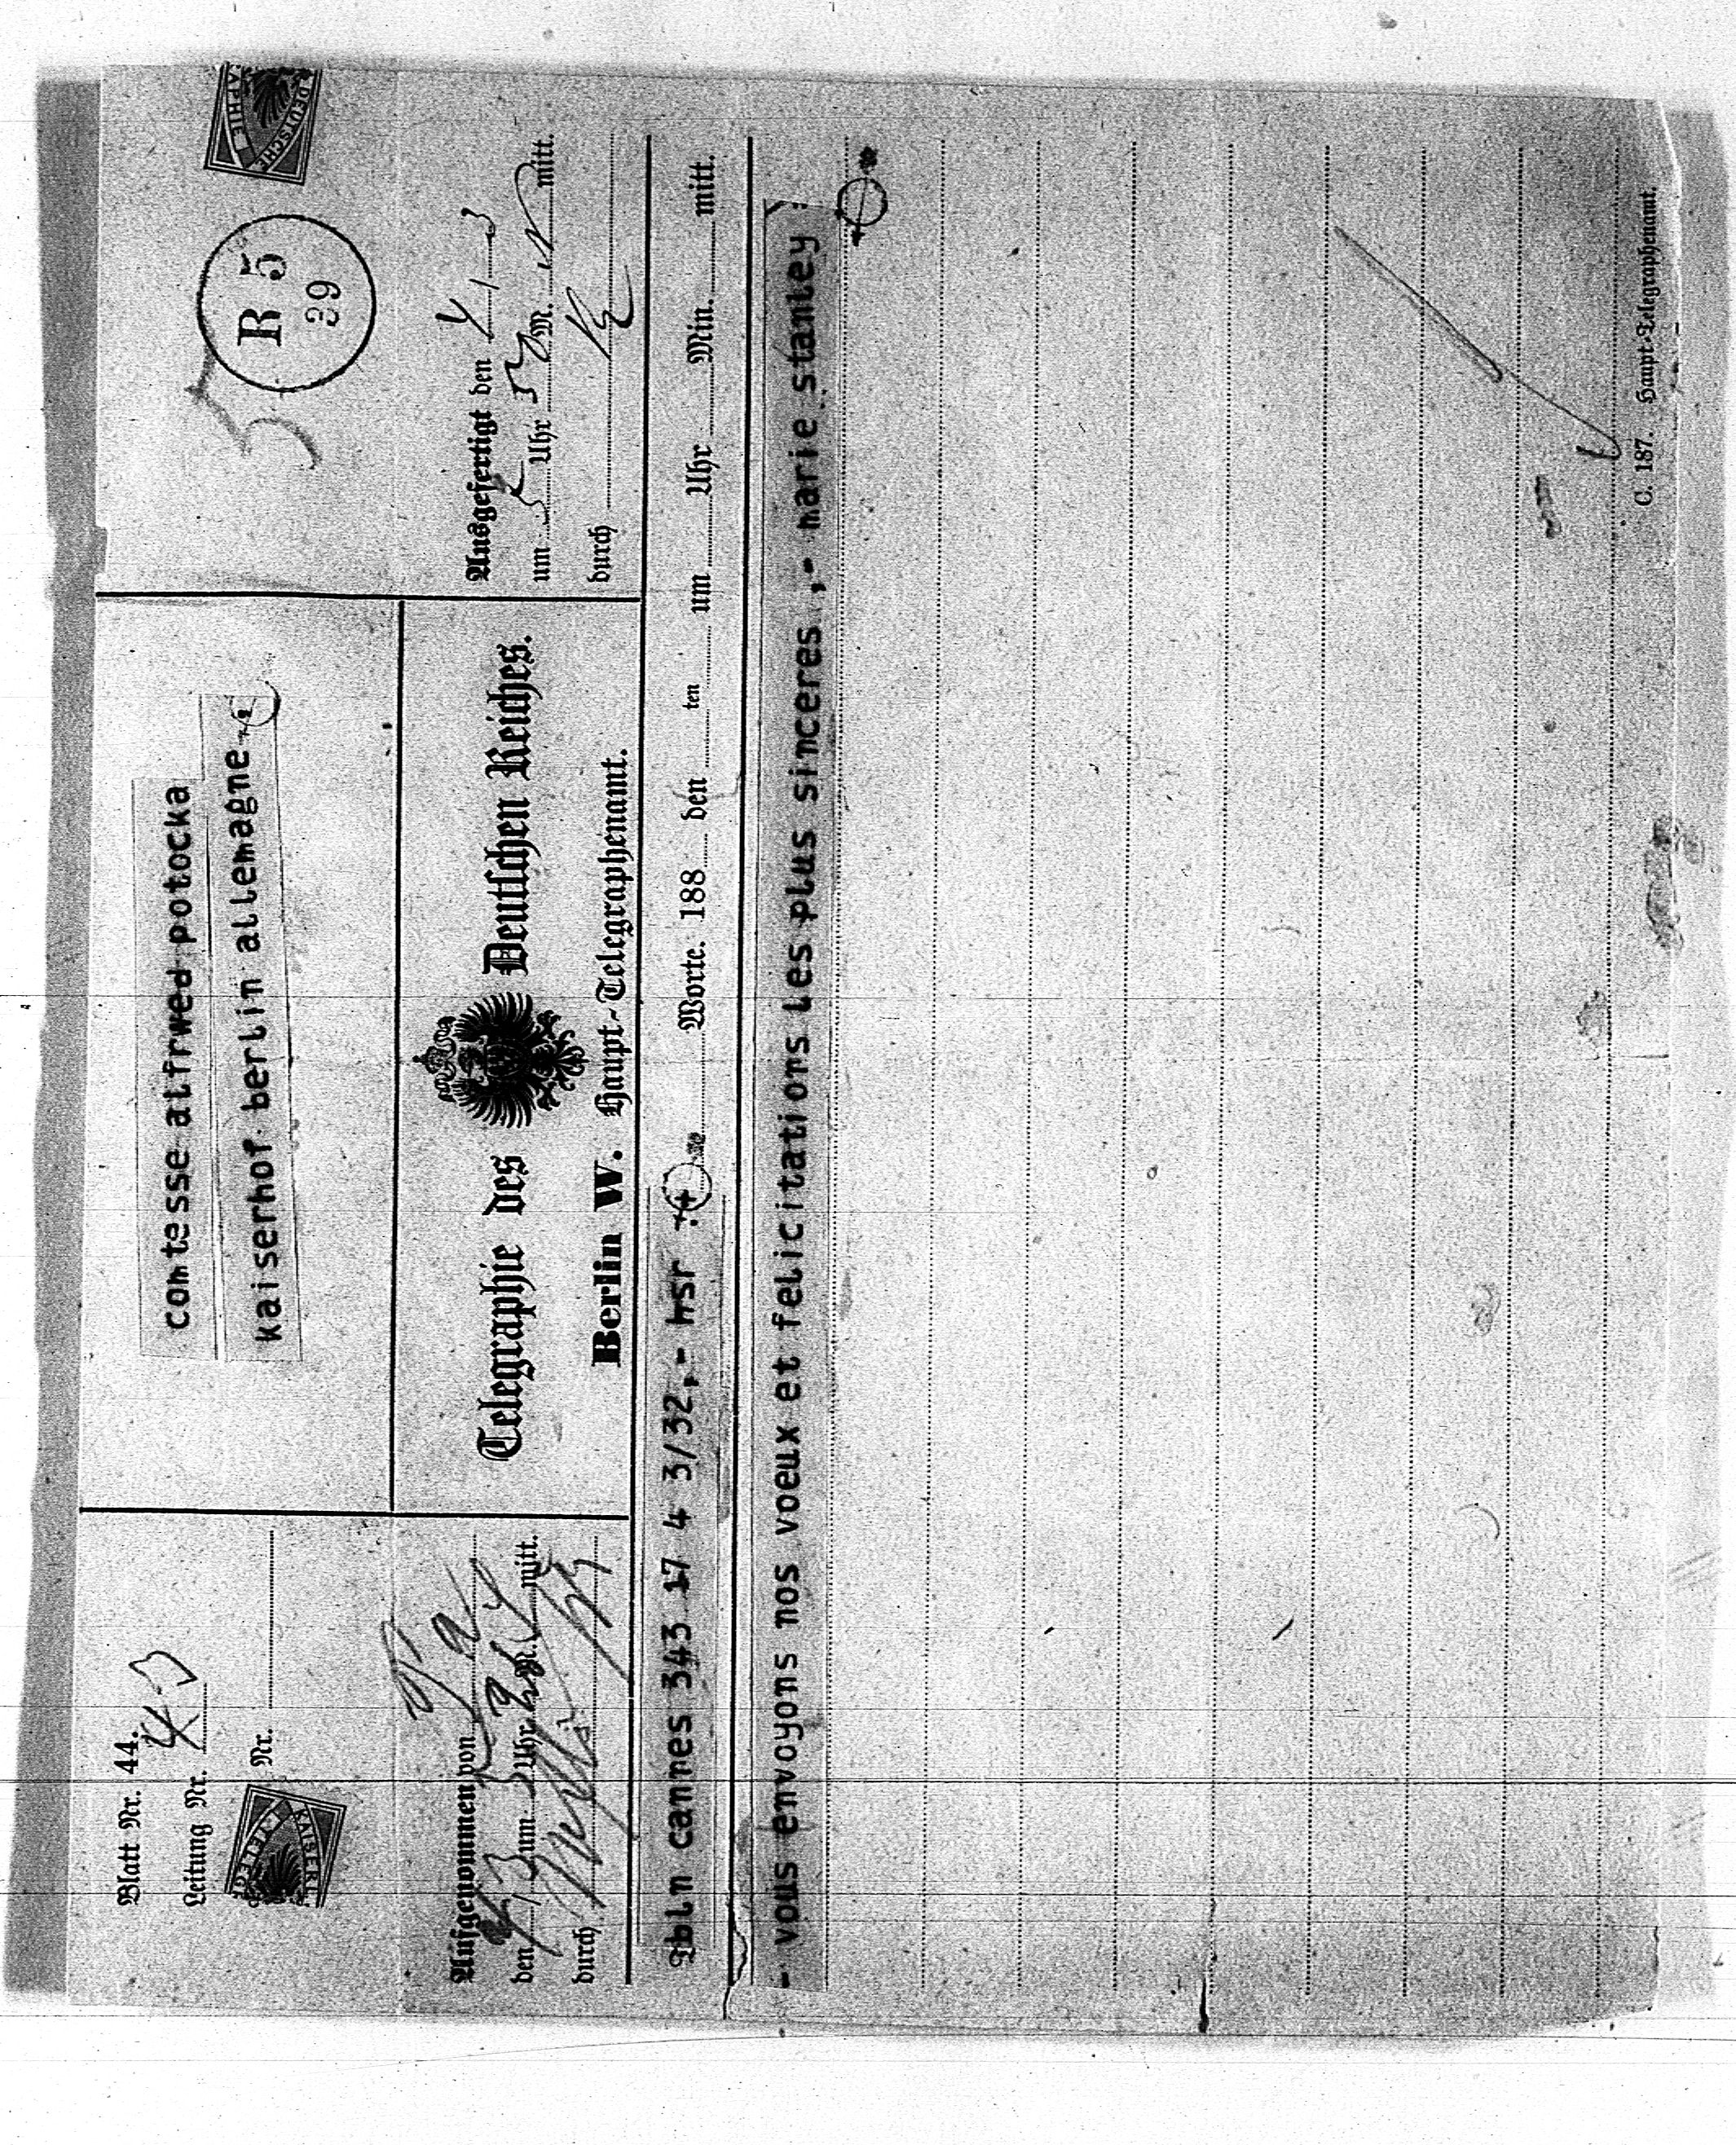 Blatt Nr. 44.
Leitung Nr.
Nr.
KAISERL.
TELEG
comtesse alfrwed potocka
kaiserhof berlin allemagne
R 5
39
DEUTSCHE
APHIE
Aufgenommen von
den um Uhr M. mitt.
durch
Telegraphie des Deutschen Reiches.
Berlin W. Haupt-Telegraphenamt.
Ausgefertigt den 4/3
um 5 Uhr M. mitt.
durch
bln cannes 343 17 4 3/32,- hsr + Worte. 188 den ten um Uhr Min. mitt.
- vous envoyons nos voeux et felicitations les plus sinceres ,- marie stanley
C. 187. Haupt-Telegraphenamt.